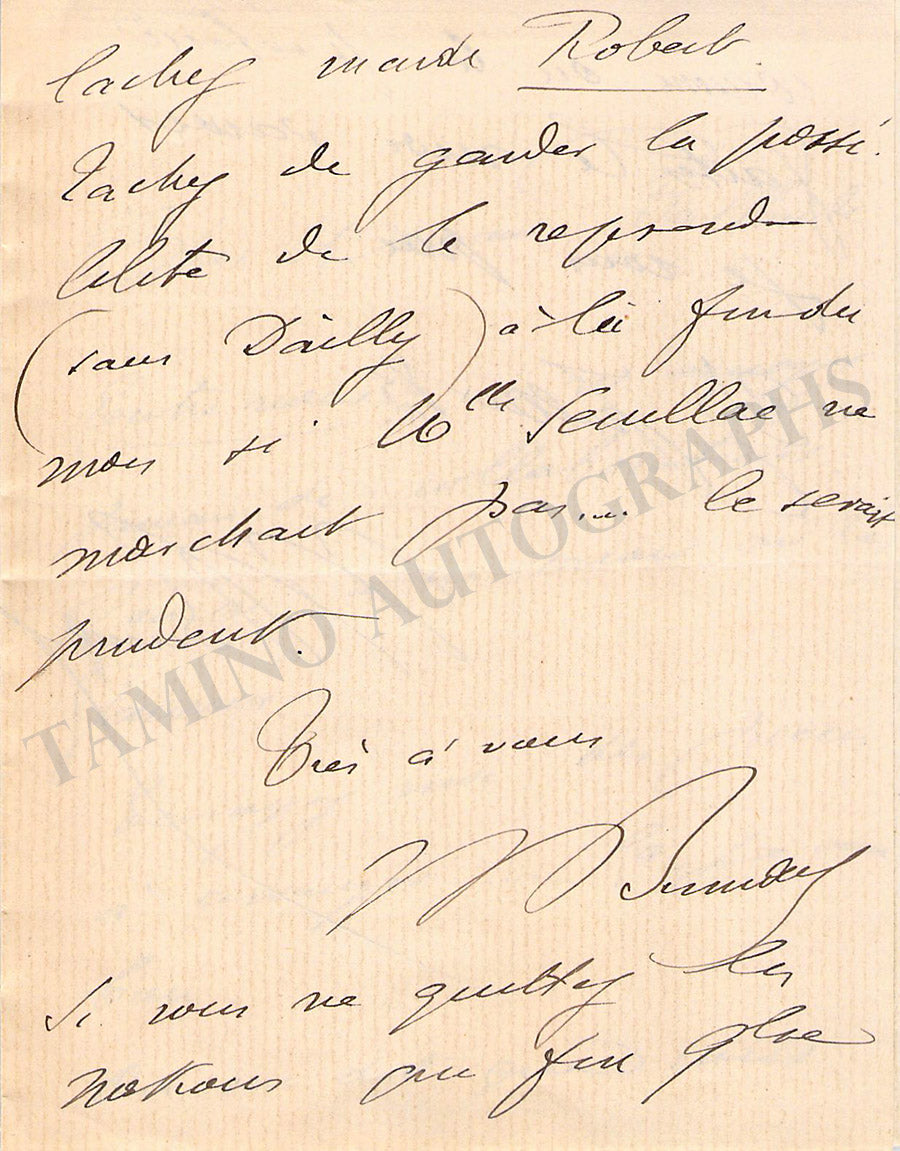 Tachez
Robert
Tachez de garder la possi-
bilité de le reprendre
(sans Dailly) à la fin du
mois si Mlle Seuillac ne
marchait pas... ce serait
prudent.
Très à vous
Si vous ne quittez les
que fin
TAMINO AUTOGRAPHS